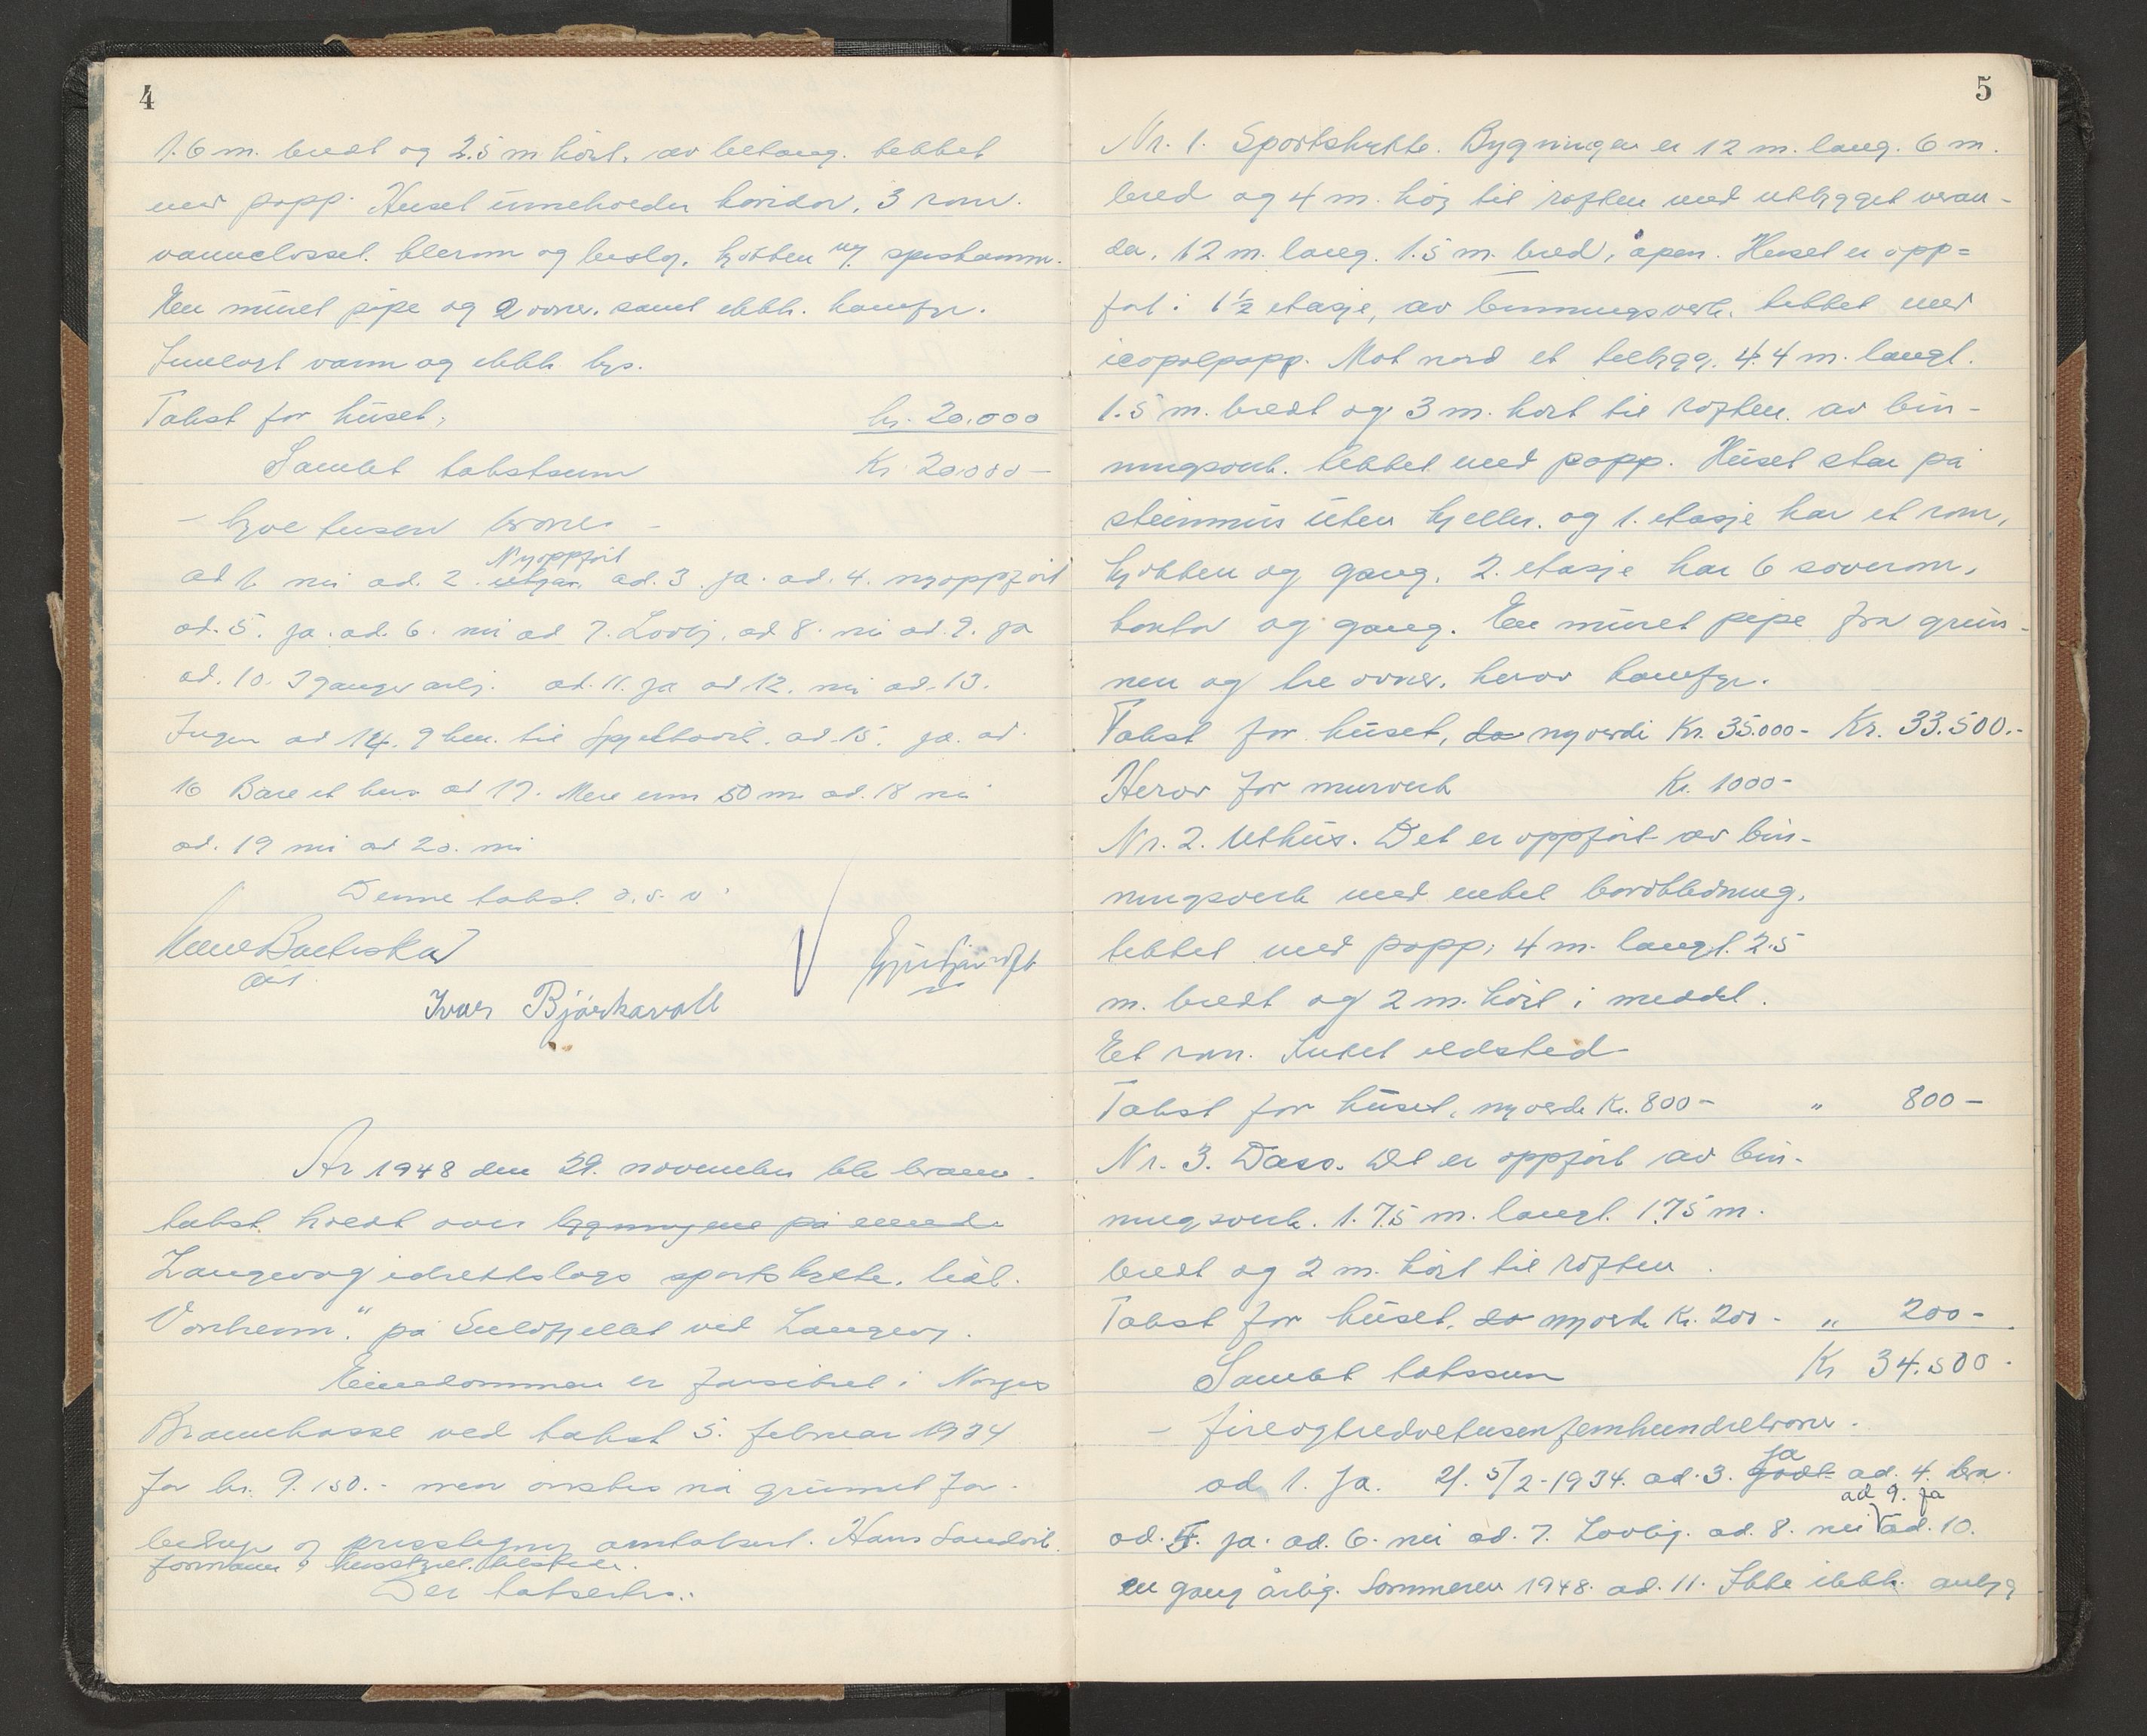 4
1.6 m. bredt og 2.5 m høit. av betong. tekket
med papp. Huset inneholder koridor, 3 rom.
vannclosset. klerom og bislag. kjökken og spiskammer.
En muret pipe og 2 ovner. samt elektr. komfyr.
Innlagt vann og elektr. lys.
Takst for huset, kr. 20.000
Samlet takstsum Kr 20.000 –
– tyve tusen kroner –
Nyoppfört
ad 1. nei ad. 2. utgår. ad. 3. ja. ad. 4. nyoppfört
ad. 5. ja. ad. 6. nei ad 7. Lovlig. ad 8. nei ad. 9. ja
ad. 10. 3 ganger årlig. ad. 11. ja ad 12. nei ad. 13.
Ingen ad 14. 9 km. til Spjelkavik. ad 15. ja. ad.
16 Bare et hus ad 17. Mere enn 50 m ad. 18 nei
ad. 19 nei ad 20. nei
Denne takst. o. s. v.
Ivar Björkavoll
År 1948 den 29. november ble brann-
takst. holdt over bygningene på eiend.
Langevåg idrettslags sportshytte. kal.
Vonheim." på Sulafjellet ved Langevåg.
Eiendommen er forsikret i Norges
Brannkasse ved takst 5. februar 1934
for kr. 9.150.- men ønskes nå grunnet for-
bedringer og prisstigning omtaksert. Hans Sandvik.
formann i husstyret. tilstede.
Der takseres..
5
Nr. 1. Sportshytte. Bygningen er 12 m. lang. 6 m.
bred og 4 m. höy til röften med utbygget veran-
da, 12 m. lang. 1.5 m. bred, åpen. Huset er opp=
fört i 1 1/2 etasje, av binningsverk. tekket med
icopalpapp. Mot nord et tilbygg. 4.4 m. langt.
1.5 m. bredt og 3 m. höit til röften. av bin-
ningsverk. tekket med papp. Huset står på
steinmur uten kjeller. og 1. etasje har et rom,
kjökken og gang. 2. etasje har 6 soverom,
kontor og gang. En muret pipe fra grun-
nen og tre ovner, herav komfyr.
Takst for huset, do nyverdi Kr. 35.000- Kr. 33.500.-
Herav for murverk Kr. 1000-
Nr. 2. Uthus. Det er oppfört av bin-
ningsverk med enkel bordkledning.
tekket med papp, 4 m. langt. 2.5
m. bredt og 2 m. höit i meddel.
Et rom. Intet ildsted
Takst for huset, nyverdi Kr. 800- " 800-
Nr. 3. Dass. Det er oppfört av bin-
ningsverk. 1.75 m. langt. 1.75 m.
bredt og 2 m. höit til röften.
Takst for huset. do nyverdi Kr. 200- " 200-
Samlet takssum Kr 34.500.
– fireogtredvetusenfemhundrekroner.
ja
ad 1. Ja. 2/. 5/2-1934. ad. 3. godt ad. 4. bra.
ad 9. ja
ad. 5. ja. ad. 6. nei ad. 7. Lovlig. ad. 8. nei ad. 10.
en gang årlig. Sommeren 1948. ad. 11. Ikke elektr. anlegg